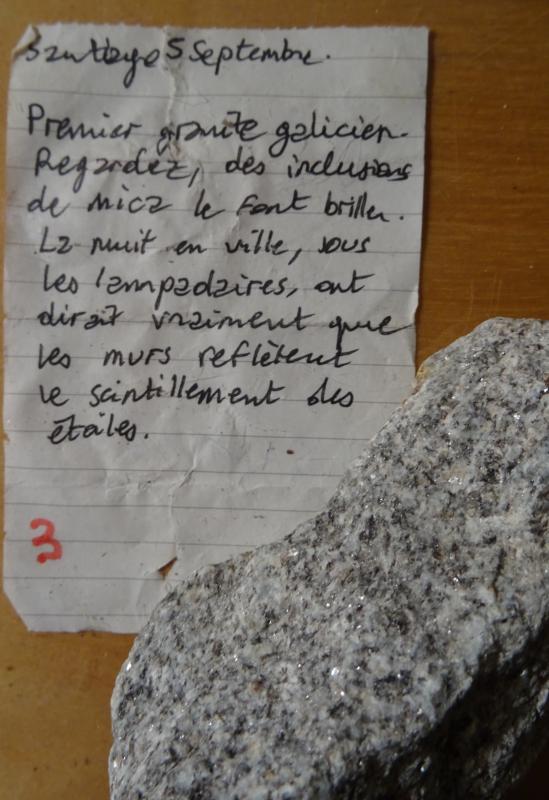 Santiago 5 Septembre.
Premier granite galicien.
Regardez, des inclusions
de mica le font briller.
La nuit en ville, sous
les lampadaires, ont
dirait vraiment que
les murs reflètent
le scintillement des
étoiles.
3